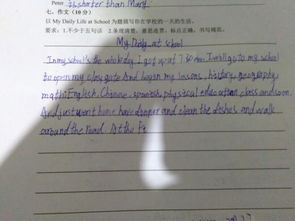 Peter is shorter than Mary.
七、作文(10分)
以 My Daily Life at School 为题描写你在学校的一天的生活。
要求:1.不少于五句话 2.条理清楚,意思连贯,标点正确,书写规范。
My Daily at school
In my school's the I get up at I go to my school
to open my And began my lessons, history, geography
math, English, Chinese, spanish, physical education class and soon.
And just went home have danper and clean the dishes and walk
around the road. At the